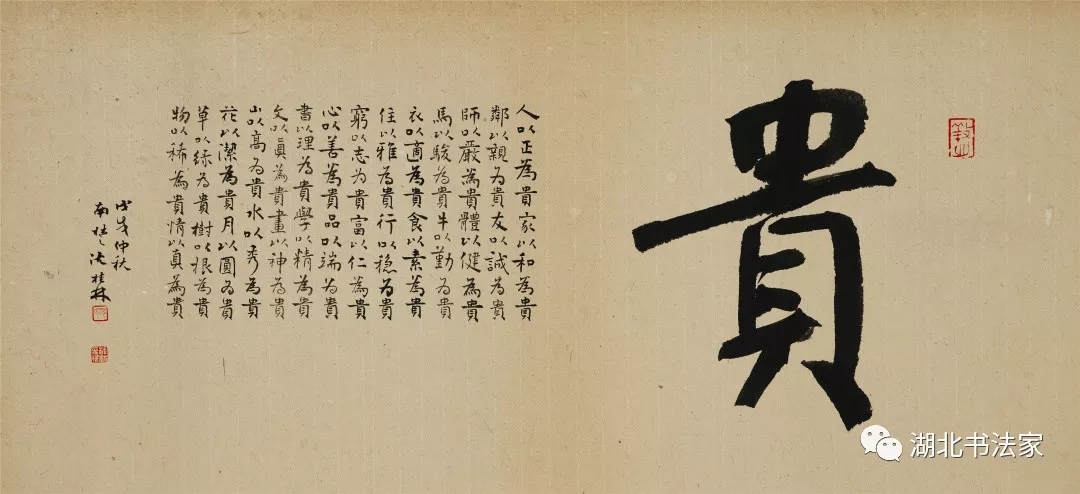 貴
人以正為貴家以和為貴
鄰以親为貴友以誠为貴
師以嚴為貴體以健為貴
馬以駿為貴牛以勤为貴
衣以適為貴食以素為貴
住以雅為貴行以稳为貴
窮以志为貴富以仁為貴
心以善為貴品以端为貴
書以理為貴學以精為貴
文以眞為貴畫以神為貴
山以高為貴水以秀為貴
花以潔為貴月以圓为貴
草以绿为貴樹以根為貴
物以稀為貴情以真為貴
戊戌仲秋
桂林
湖北书法家